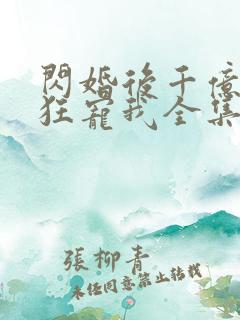 閃婚後千億
狂寵我全集
張柳青
未經同意禁止轉載